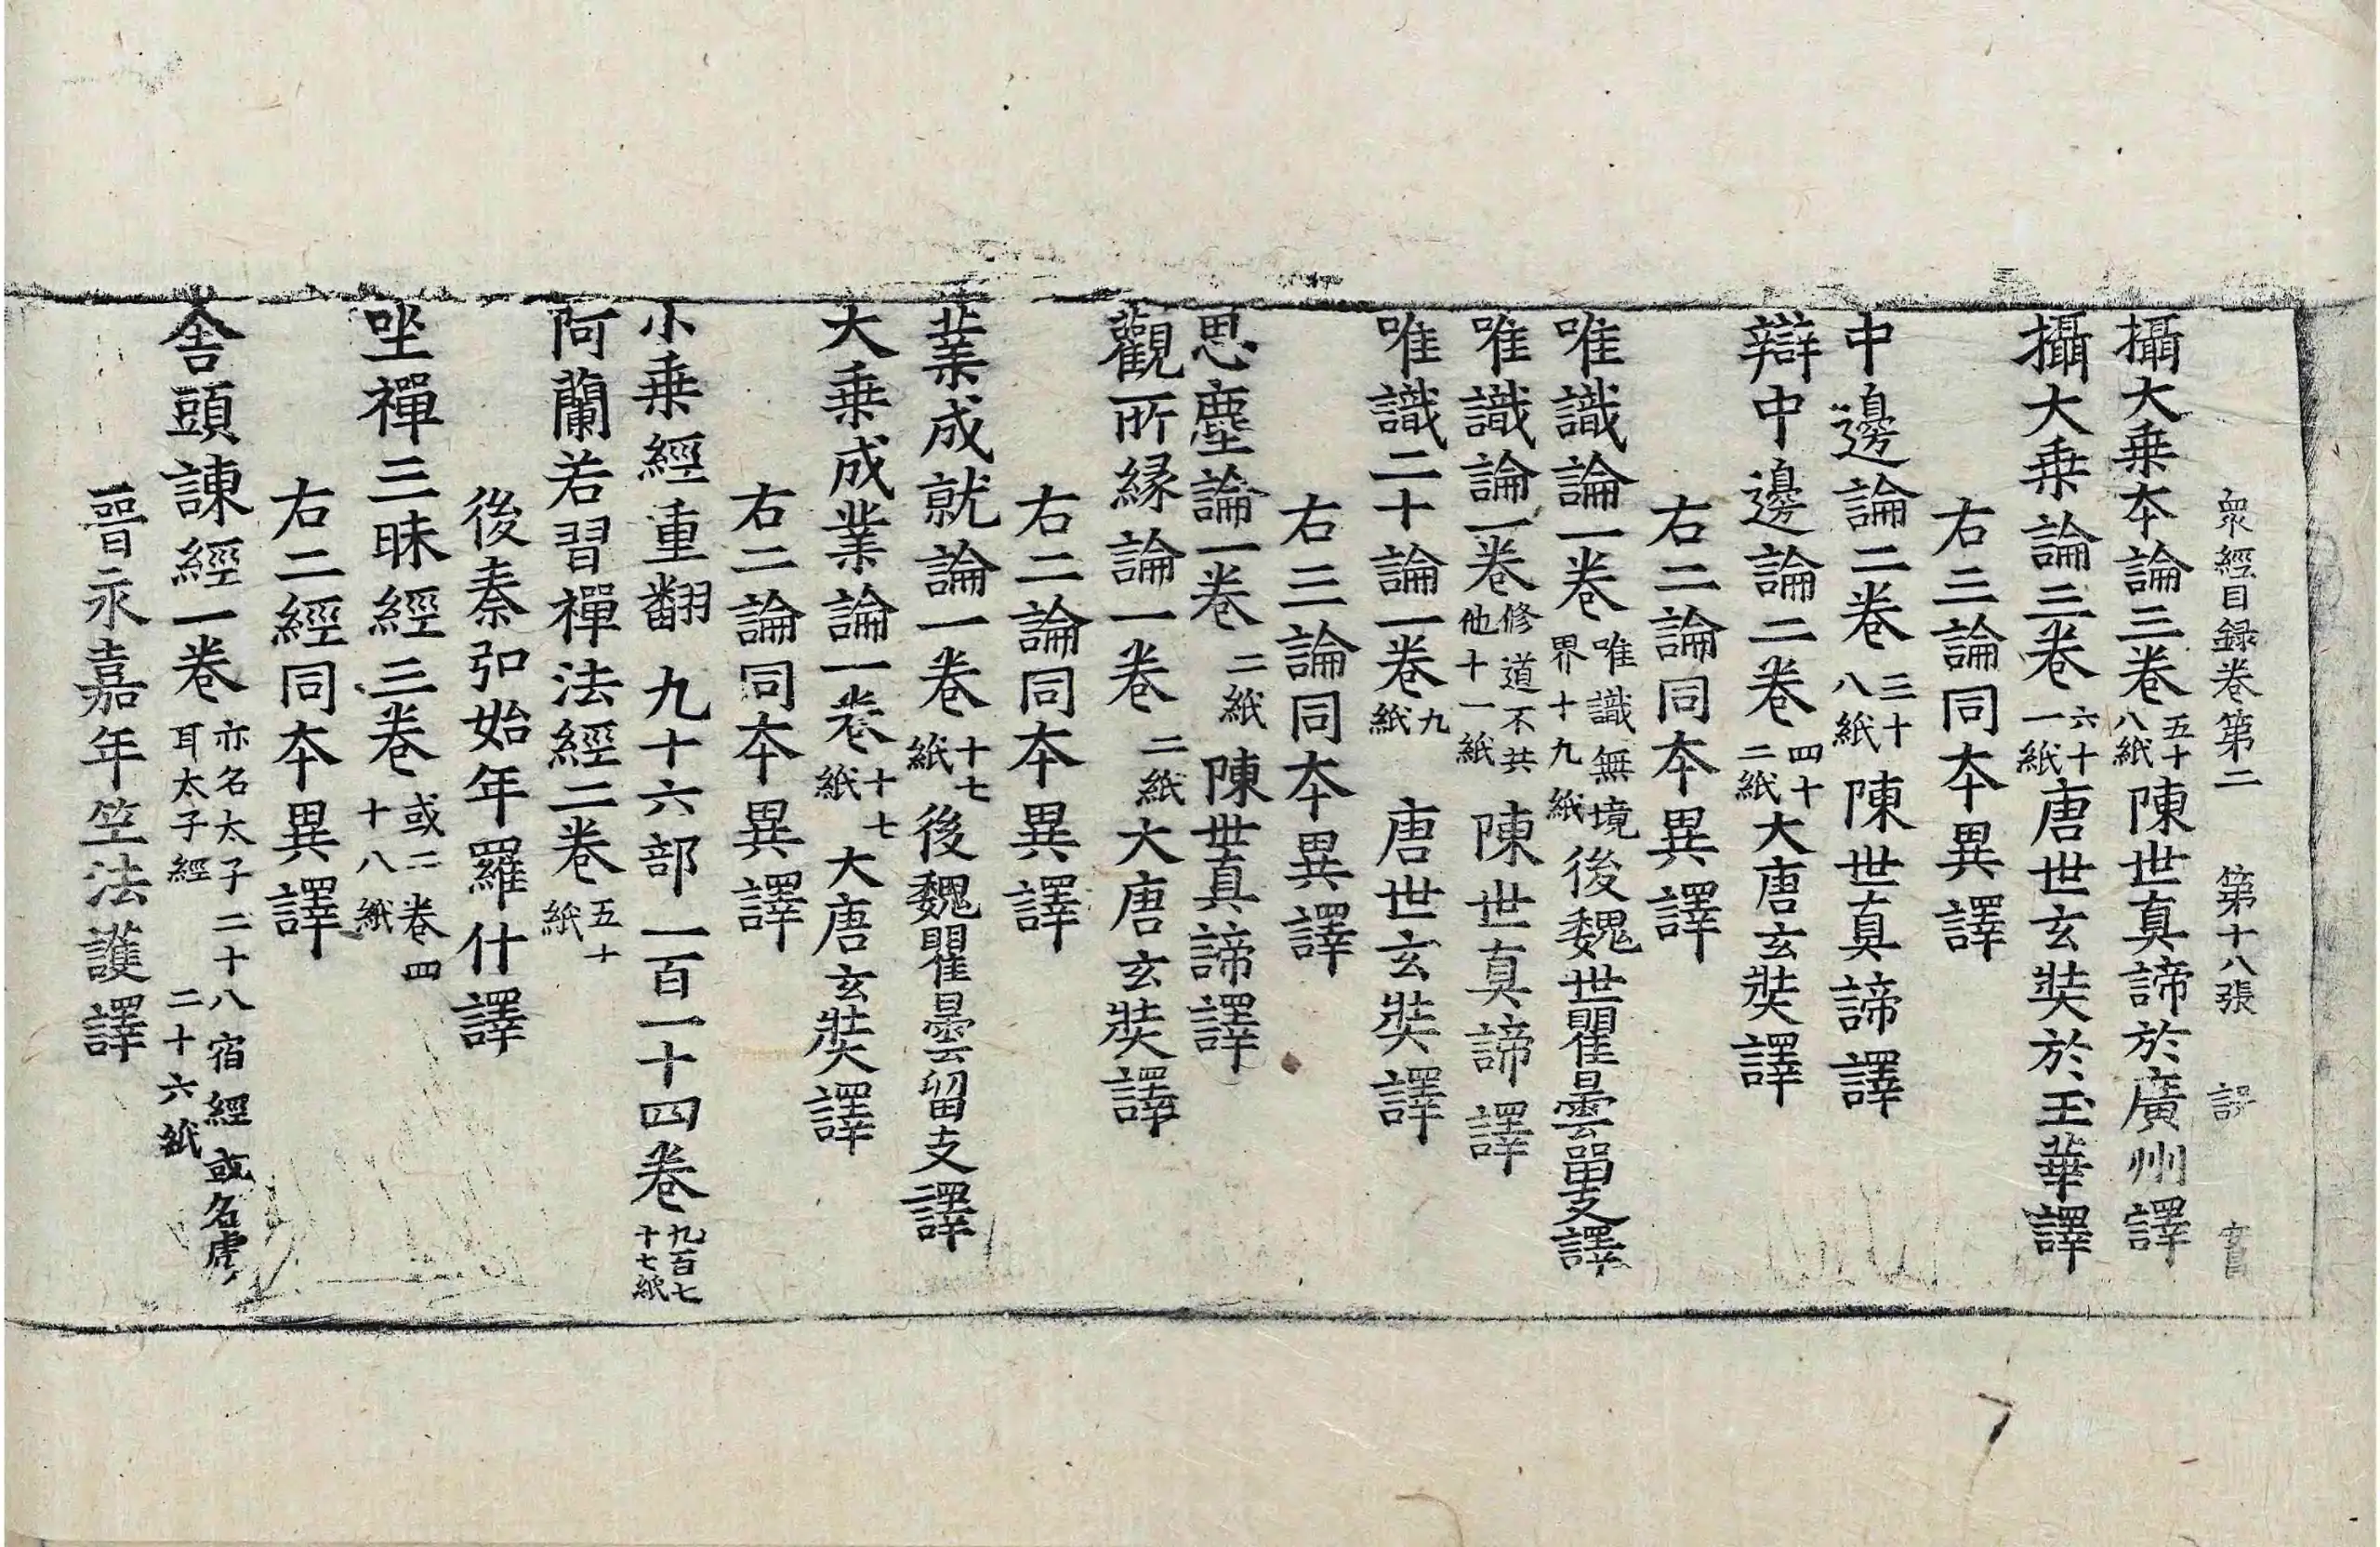 衆經目録卷第二　第十八張　設
攝大乗本論三卷五十八紙陳世真諦於廣州譯
攝大乗論三卷六十一紙唐世玄奘於玉華譯
右三論同本異譯
中邊論二卷三十八紙陳世真諦譯
辯中邊論二卷四十二紙大唐玄奘譯
右二論同本異譯
唯識論一卷唯識無境界十九紙後魏世瞿曇留支譯
唯識論一卷修道不共他十一紙陳世真諦譯
唯識二十論一卷九紙唐世玄奘譯
右三論同本異譯
思塵論一卷二紙陳世真諦譯
觀所縁論一卷二紙大唐玄奘譯
右二論同本異譯
業成就論一卷十七紙後魏瞿曇留支譯
大乗成業論一卷十七紙大唐玄奘譯
右二論同本異譯
小乗經重翻九十六部一百一十四卷九百七十七紙
阿蘭若習禪法經二卷五十紙
後秦弘始年羅什譯
坐禪三昧經三卷或二卷四十八紙
右二經同本異譯
舎頭諫經一卷亦名太子二十八宿經或名虎耳太子經二十六紙
晉永嘉年竺法護譯